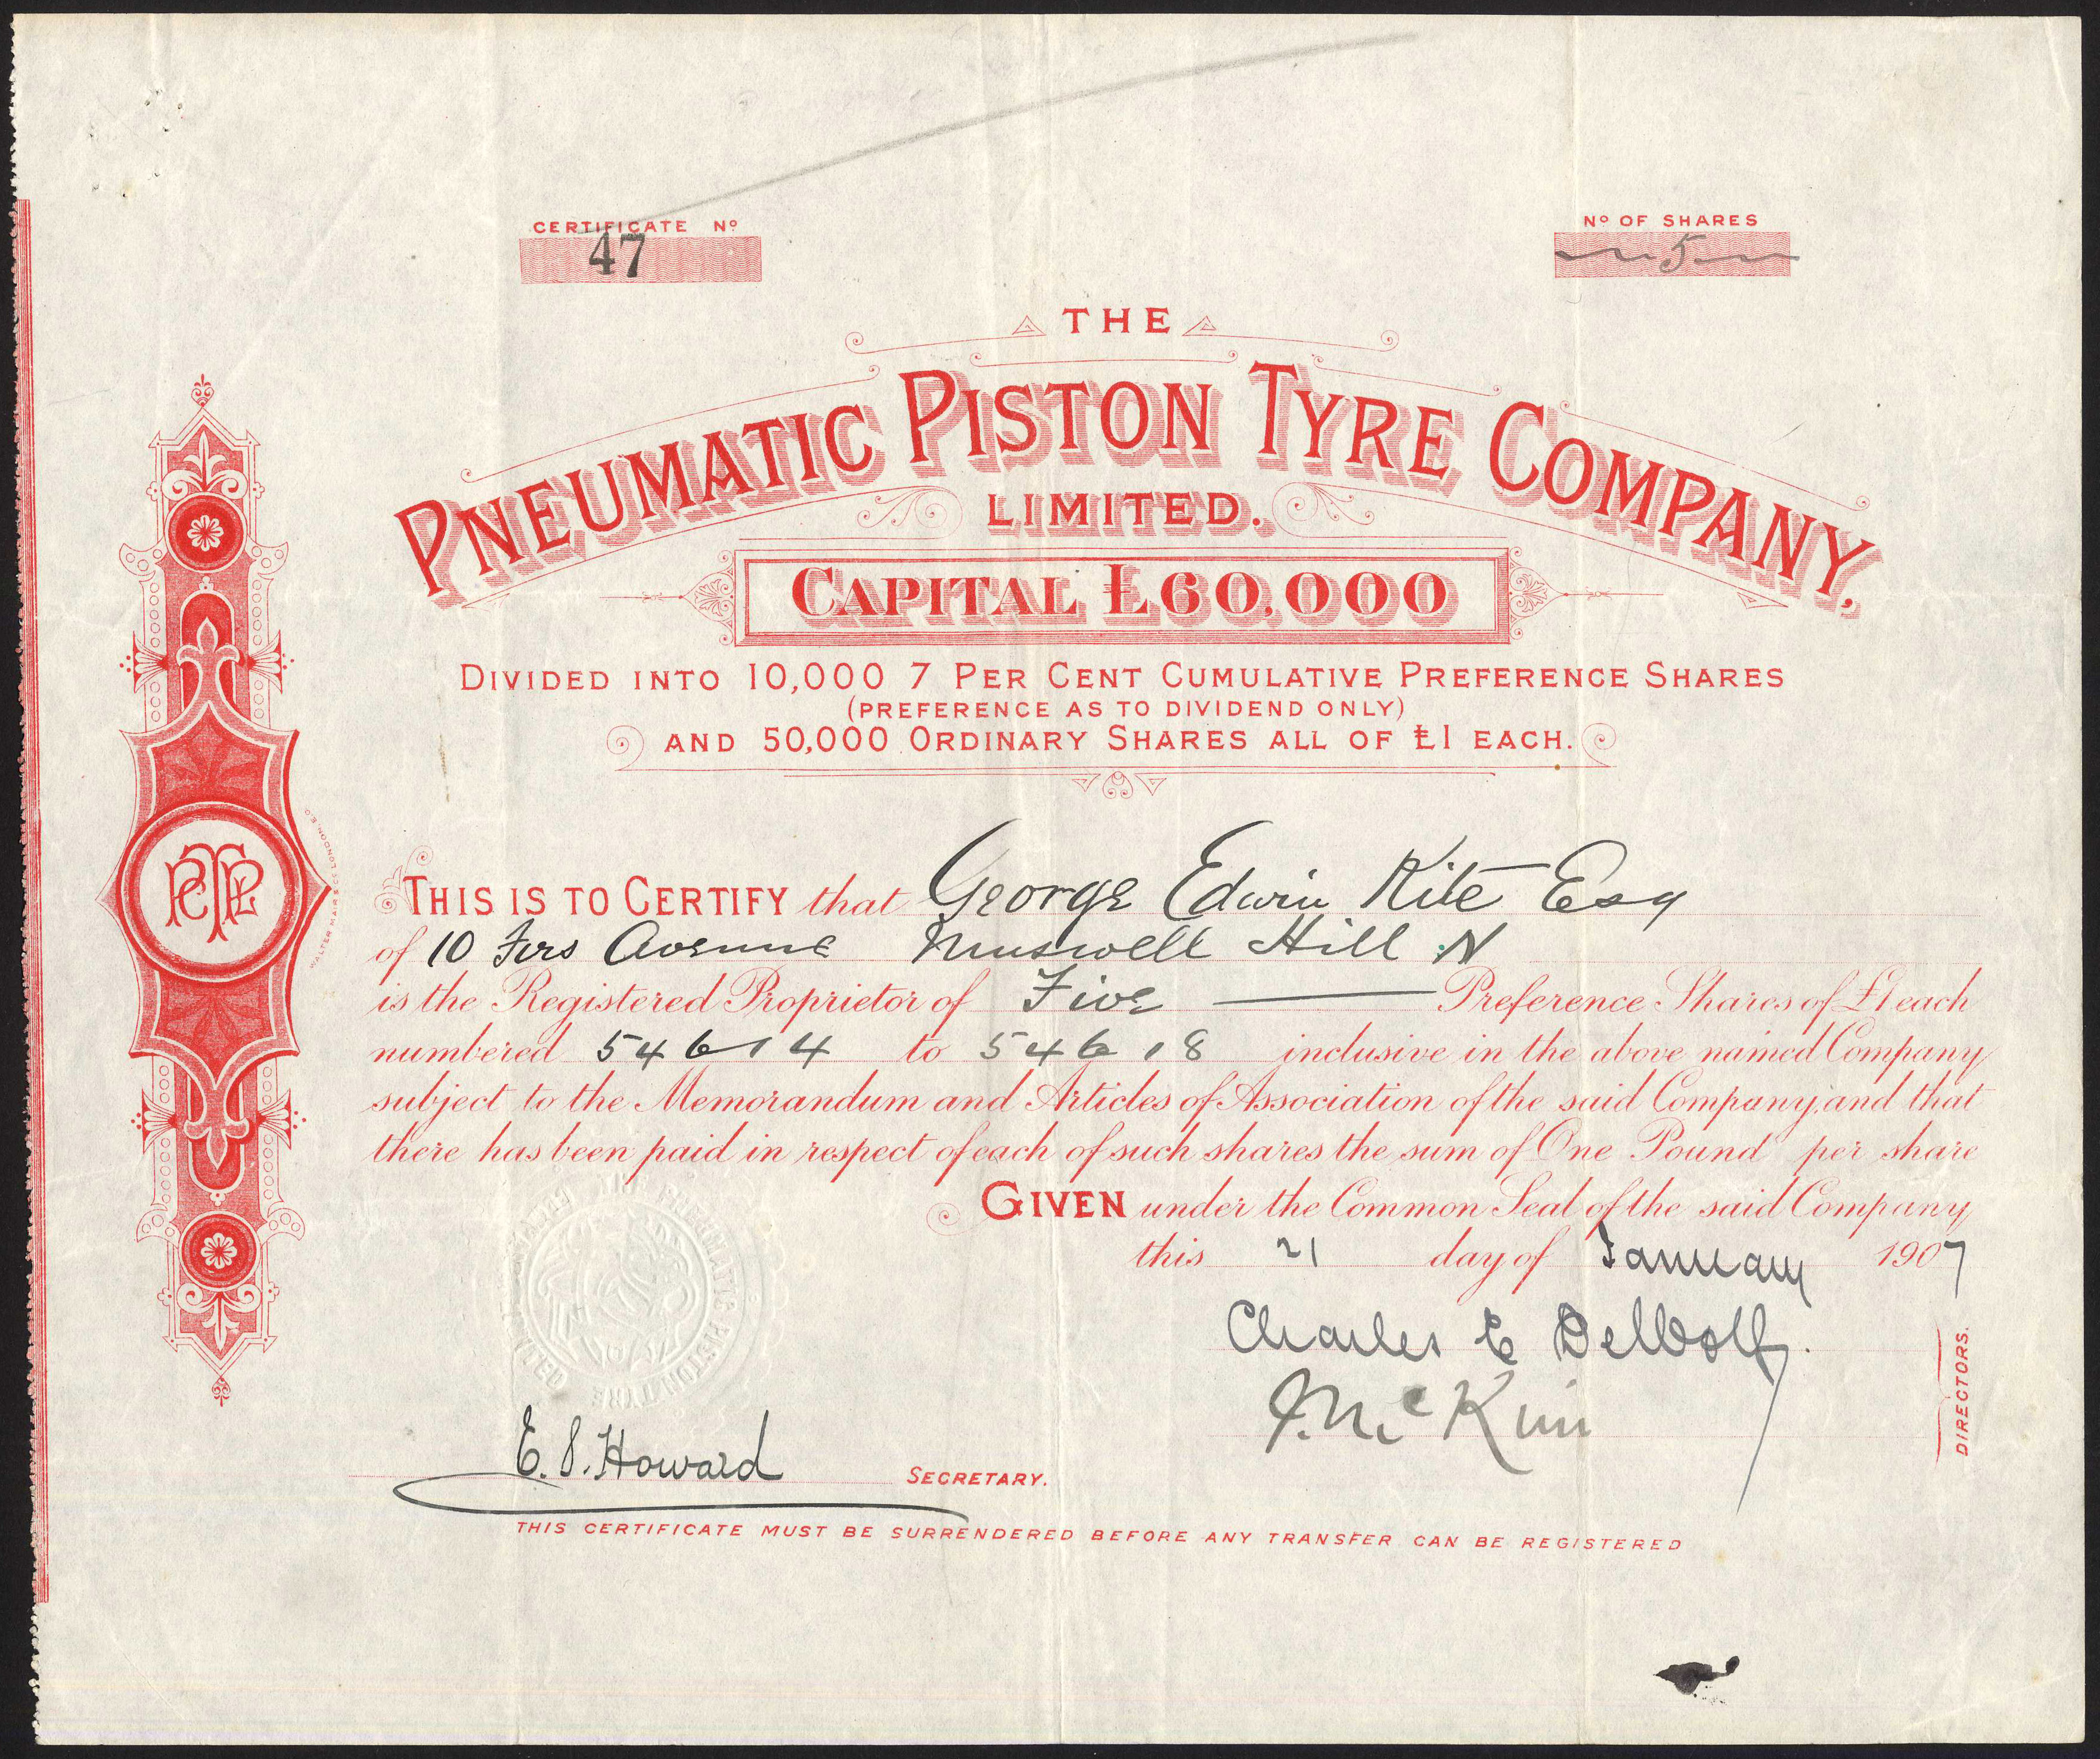 CERTIFICATE Nº
47
Nº OF SHARES
5
THE
PNEUMATIC PISTON TYRE COMPANY,
LIMITED.
CAPITAL £60,000
DIVIDED INTO 10,000 7 PER CENT CUMULATIVE PREFERENCE SHARES
(PREFERENCE AS TO DIVIDEND ONLY)
AND 50,000 ORDINARY SHARES ALL OF £1 EACH.
WALTER MAIR & Cº LONDON E.C.
THIS IS TO CERTIFY that George Edwin Kite Esq
of 10 Firs Avenue Muswell Hill N
is the Registered Proprietor of Five Preference Shares of £1 each
numbered 54614 to 54618 inclusive in the above named Company
subject to the Memorandum and Articles of Association of the said Company, and that
there has been paid in respect of each of such shares the sum of One Pound per share
GIVEN under the Common Seal of the said Company
this 21 day of January 1907
THE PNEUMATIC PISTON TYRE COMPANY LIMITED
Charles E
J. McKim
DIRECTORS.
E. S. Howard SECRETARY.
THIS CERTIFICATE MUST BE SURRENDERED BEFORE ANY TRANSFER CAN BE REGISTERED